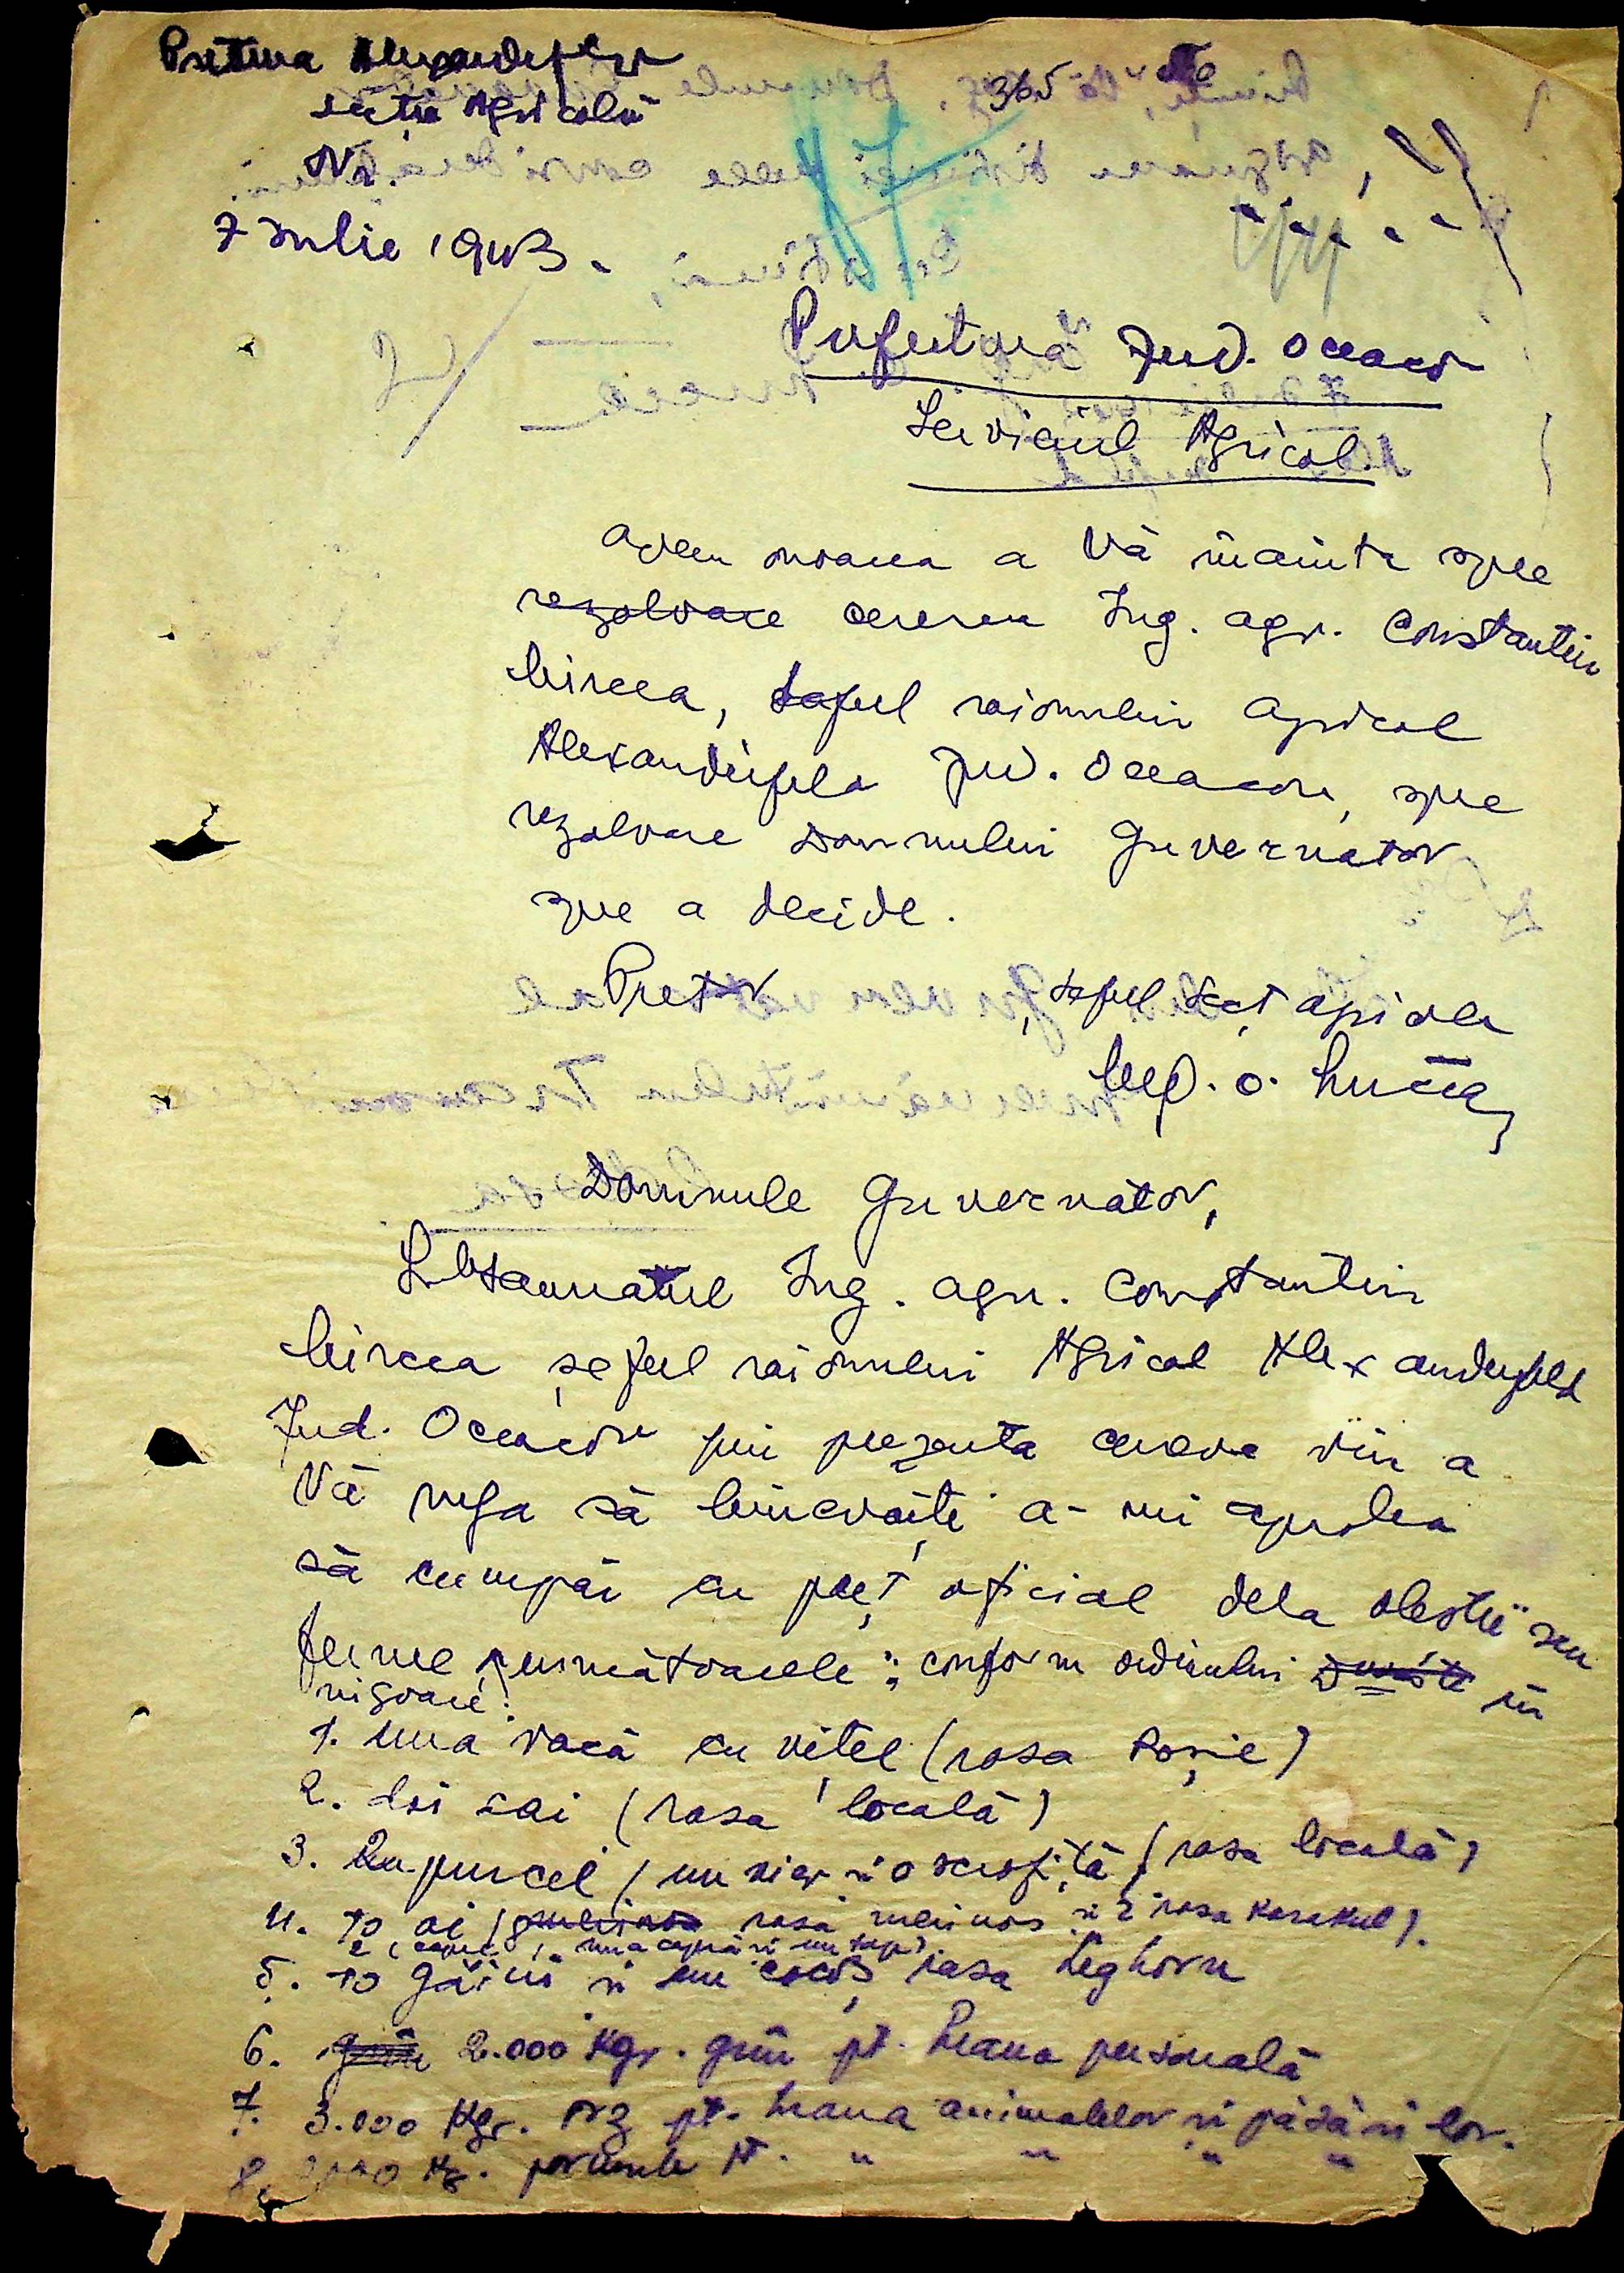 Pretura Alexanderfeld
secția Agricolă
Nr.
365
7 Iulie 1943.
Prefectura Jud. Oceacov
Serviciul Agricol
Avem onoarea a Vă înainta spre
rezolvare cererea Ing. agr. Constantin
Mircea, șeful raionului agricol
Alexanderfeld Jud. Oceacov, spre
rezolvare Domnului Guvernator
spre a decide.
Pretor
Șeful Secț agricole
Ing. C. Mircea
Domnule Guvernător,
Subsemnatul Ing. agr. Constantin
Mircea șeful raionului Agricol Alexanderfeld
Jud. Oceacov prin prezenta cerere viu a
Vă ruga să binevoiți a-mi aproba
să cumpăr cu preț oficial dela obștii sau
ferme următoarele: conform ordinului în
vigoare:
1. Una vacă cu vițel (rasa Roșie)
2. doi cai (rasa locală)
3. 2 purcei (un vier și o scrofiță) (rasa locală)
4. 10 oi rasa merinos și 2 rasa Karakul).
2 capre (una capră și un țap)
5. 10 găini și un cocoș rasa Leghorn
6. 2.000 Kgr. grîu pt. hrana personală
7. 3.000 Kgr. orz pt. hrana animalelor și păsărilor.
8. Kg. porumb pt. " " " "